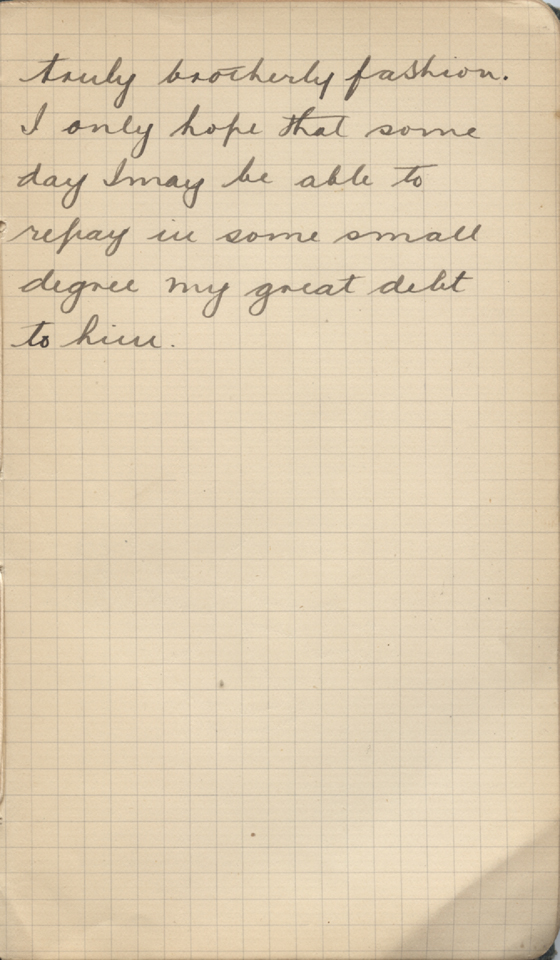 truly brotherly fashion.
I only hope that some
day I may be able to
repay in some small
degree my great debt
to him.